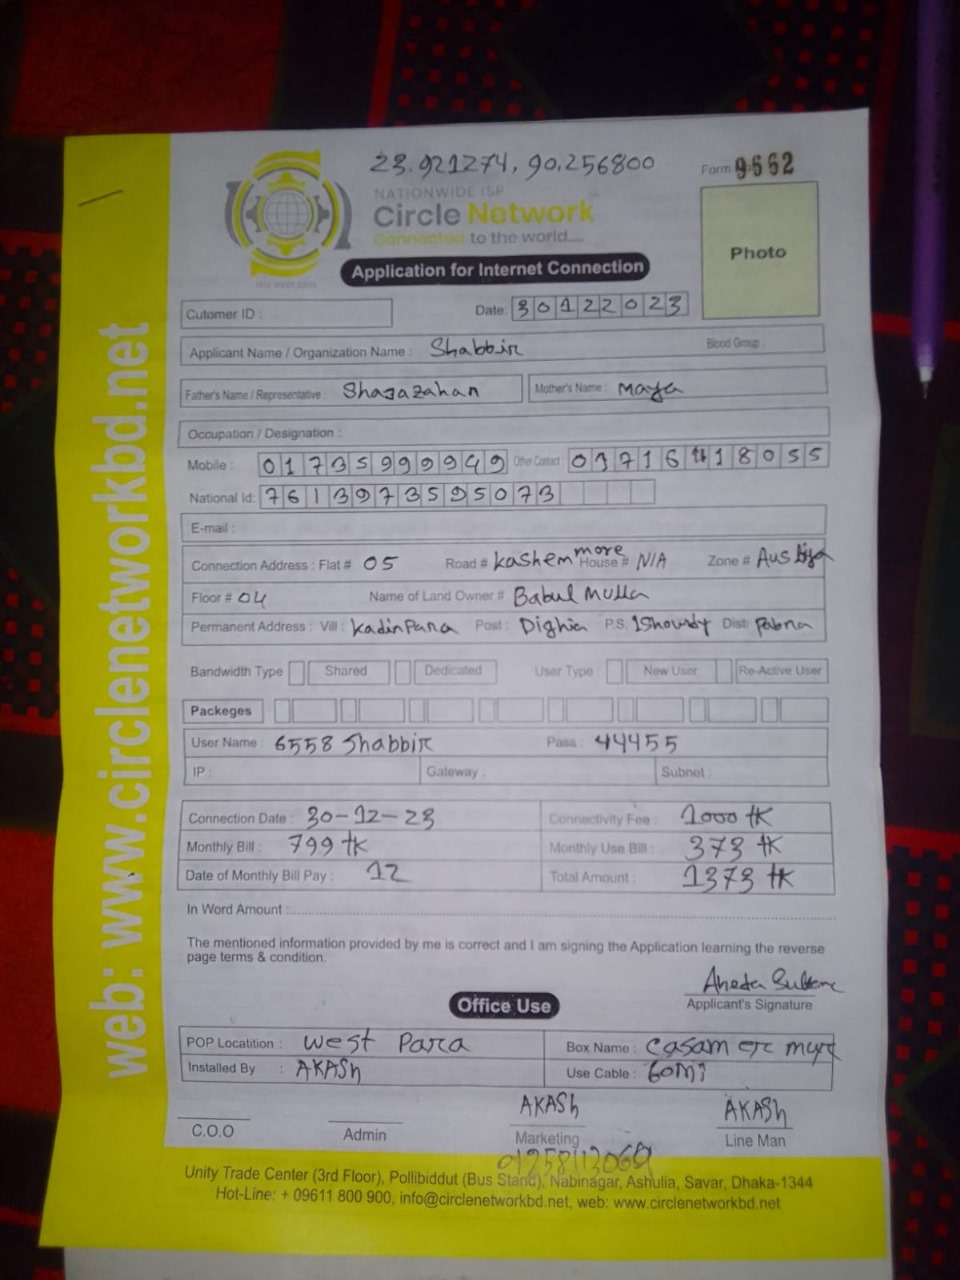 23.921274, 90.256800
Form 9662
NATIONWIDE ISP
Circle Network
Connected to the world....
Photo
Application for Internet Connection
Cutomer ID :
Date: 30122023
Applicant Name / Organization Name : Shabbir
Blood Group :
Father's Name / Representative : Shajazahan
Mother's Name : Maya
Occupation / Designation :
Mobile : 01735999949 Other Contact :
National Id: 7613973595073
E-mail :
Connection Address : Flat # 05 Road # Kashem more House # N/A Zone #
Floor # 04 Name of Land Owner # Babul Mulla
Permanent Address : Vill : Post : Dighia P.S. Dist: Pabna
Bandwidth Type Shared Dedicated User Type : New User Re-Active User
Packeges
User Name : 6558 Shabbir Pass : 44455
IP : Gateway : Subnet :
Connection Date : 30-12-23 Connectivity Fee : 1000 tk
Monthly Bill : 799 tk Monthly Use Bill : 373 tk
Date of Monthly Bill Pay : 12 Total Amount : 1373 tk
In Word Amount :
The mentioned information provided by me is correct and I am signing the Application learning the reverse
page terms & condition.
Applicant's Signature
Office Use
POP Locatition : West Para Box Name :
Installed By : AKASh Use Cable :
AKASh AKASh
C.O.O Admin Marketing Line Man
Unity Trade Center (3rd Floor), Pollibiddut (Bus Stand), Nabinagar, Ashulia, Savar, Dhaka-1344
Hot-Line: + 09611 800 900, info@circlenetworkbd.net, web: www.circlenetworkbd.net
web: www.circlenetworkbd.net